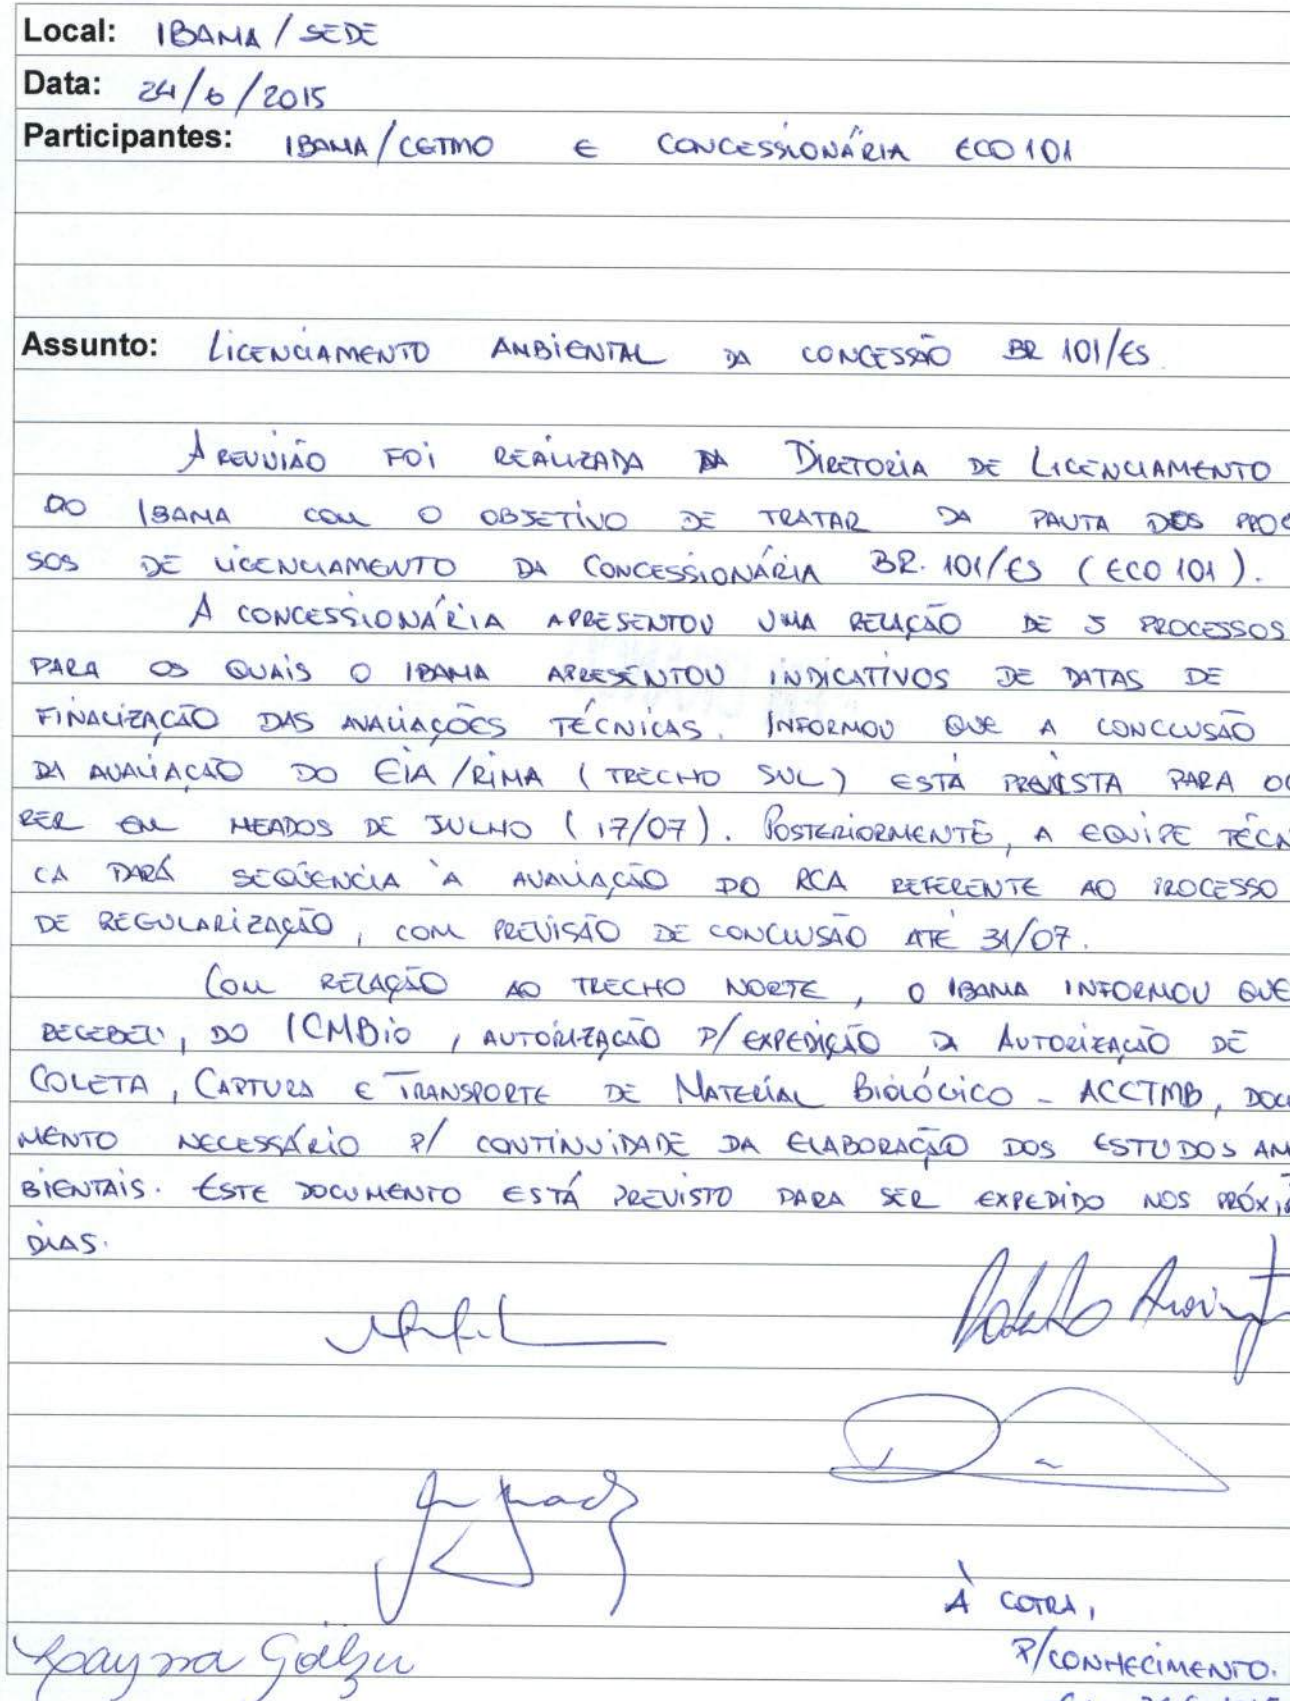 Local: IBAMA / SEDE
Data: 24/6/2015
Participantes: IBAMA/CGTMO E CONCESSIONÁRIA ECO 101
Assunto: LICENCIAMENTO AMBIENTAL DA CONCESSÃO BR 101/ES.
A REUNIÃO FOI REALIZADA DA DIRETORIA DE LICENCIAMENTO
DO IBAMA COM O OBJETIVO DE TRATAR DA PAUTA DOS PROC
SOS DE LICENCIAMENTO DA CONCESSIONÁRIA BR. 101/ES (ECO 101).
A CONCESSIONÁRIA APRESENTOU UMA RELAÇÃO DE 5 PROCESSOS
PARA OS QUAIS O IBAMA APRESENTOU INDICATIVOS DE DATAS DE
FINALIZAÇÃO DAS AVALIAÇÕES TÉCNICAS. INFORMOU QUE A CONCLUSÃO
DA AVALIAÇÃO DO EIA/RIMA (TRECHO SUL) ESTÁ PREVISTA PARA OC
RER EM MEADOS DE JULHO (17/07). POSTERIORMENTE, A EQUIPE TÉCN
CA DARÁ SEQÜENCIA À AVALIAÇÃO DO RCA REFERENTE AO PROCESSO
DE REGULARIZAÇÃO, COM PREVISÃO DE CONCLUSÃO ATÉ 31/07.
COM RELAÇÃO AO TRECHO NORTE, O IBAMA INFORMOU QUE
RECEBEU, DO ICMBio, AUTORIZAÇÃO P/ EXPEDIÇÃO DA AUTORIZAÇÃO DE
COLETA, CAPTURA E TRANSPORTE DE MATERIAL BIOLÓGICO - ACCTMB, DOCU
MENTO NECESSÁRIO P/ CONTINUIDADE DA ELABORAÇÃO DOS ESTUDOS AM
BIENTAIS. ESTE DOCUMENTO ESTÁ PREVISTO PARA SER EXPEDIDO NOS PRÓXI
DIAS.
À COTRA,
P/CONHECIMENTO.